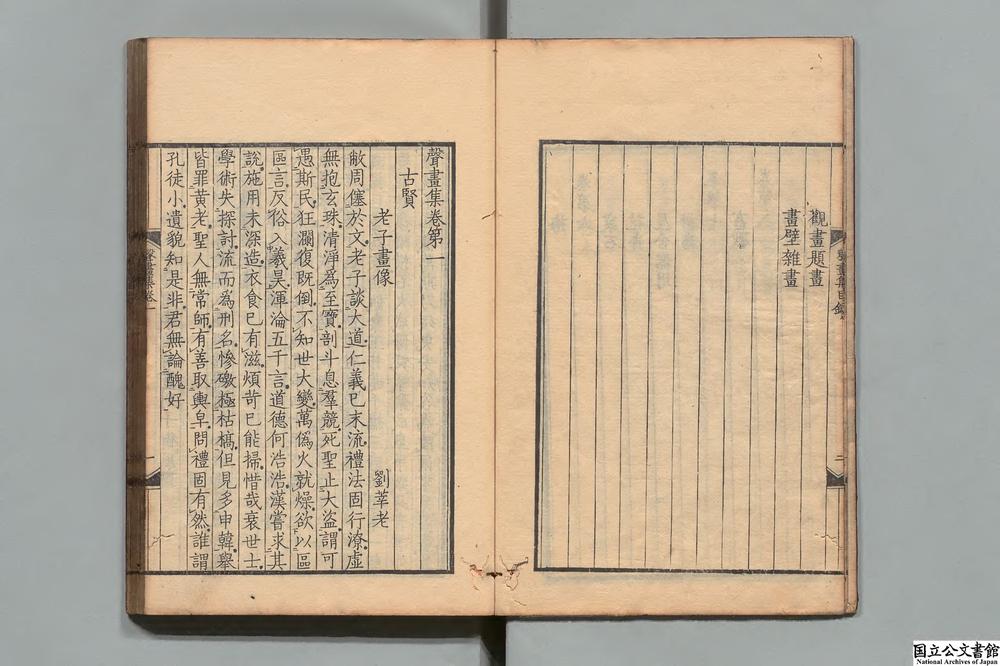 觀畫題畫
畫壁雜畫
聲畫集目錄
二
聲畫集卷第一
古賢
老子畫像
劉莘老
敝周僿於文老子談大道仁義已末流禮法固行潦虛
無抱玄珠清淨爲至寶剖斗息羣競死聖止大盜謂可
愚斯民狂瀾復旣倒不知世大變萬僞火就燥欲以區
區言反俗入羲昊渾淪五千言道德何浩浩漢嘗求其
說施用未深造衣食已有滋煩苛已能掃惜哉衰世士
學術失探討流而為刑名慘礉極枯槁但見多申韓舉
皆罪黃老聖人無常師有善取輿皁問禮固有然誰謂
孔徒小遺貌知是非君無論醜好
聲畫集卷一
一
国立公文書館
National Archives of Japan